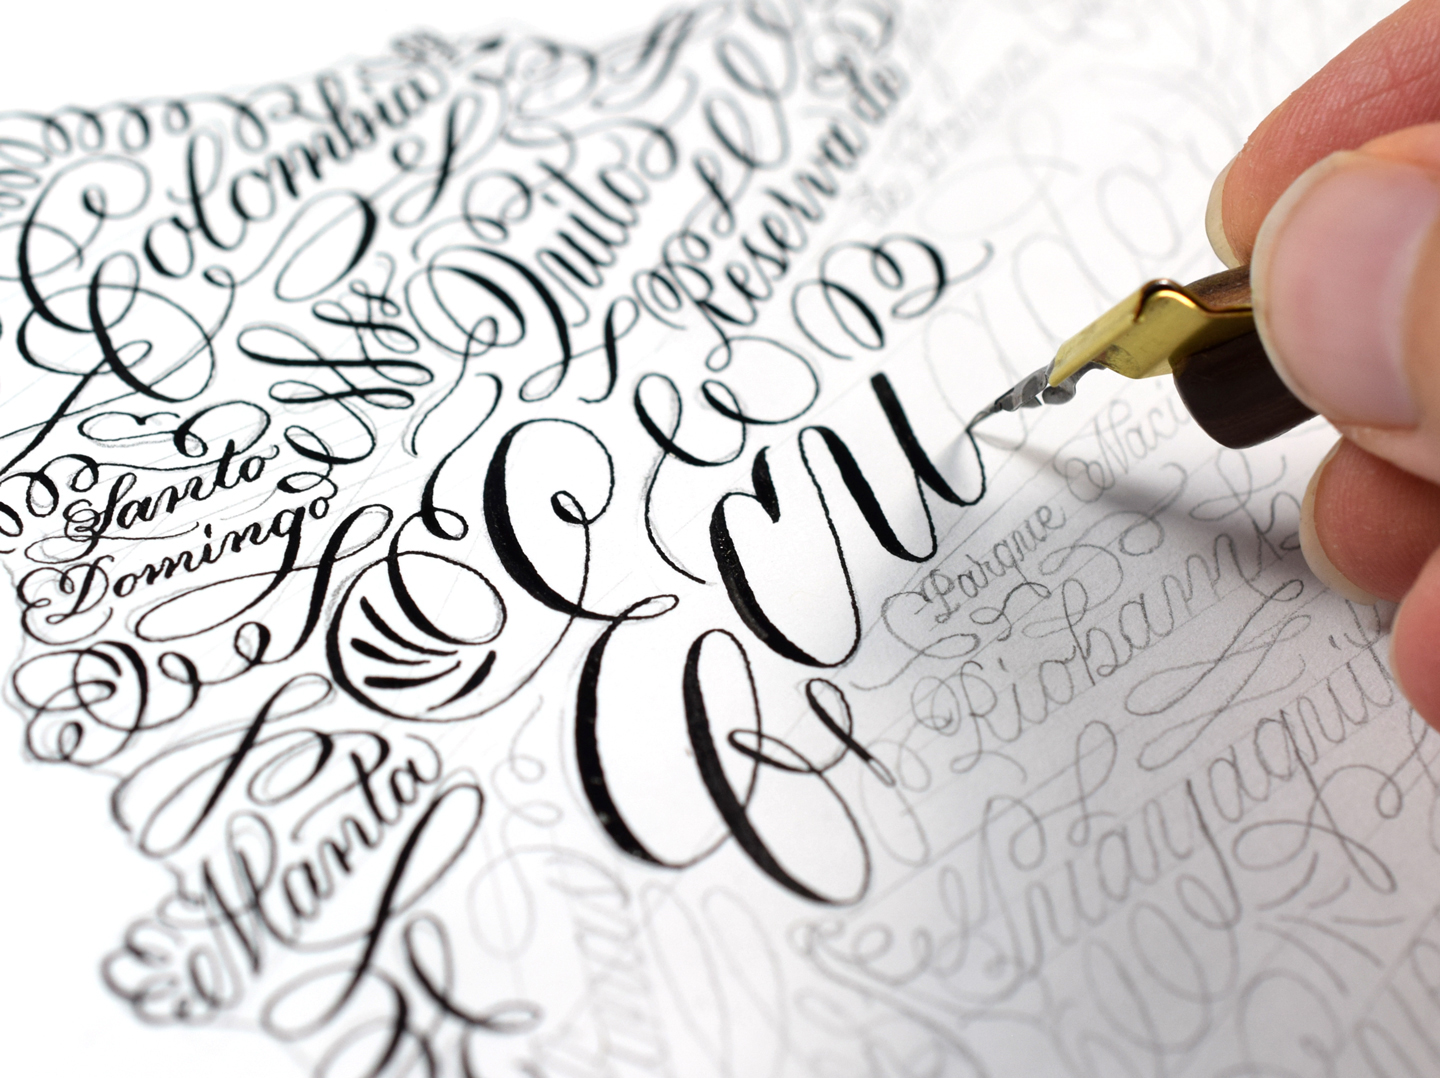 Colombia
Quito
Reserva de
Santo
Domingo
Ecu
ador
Manta
Parque Naci
Riobamb
Guayaquil